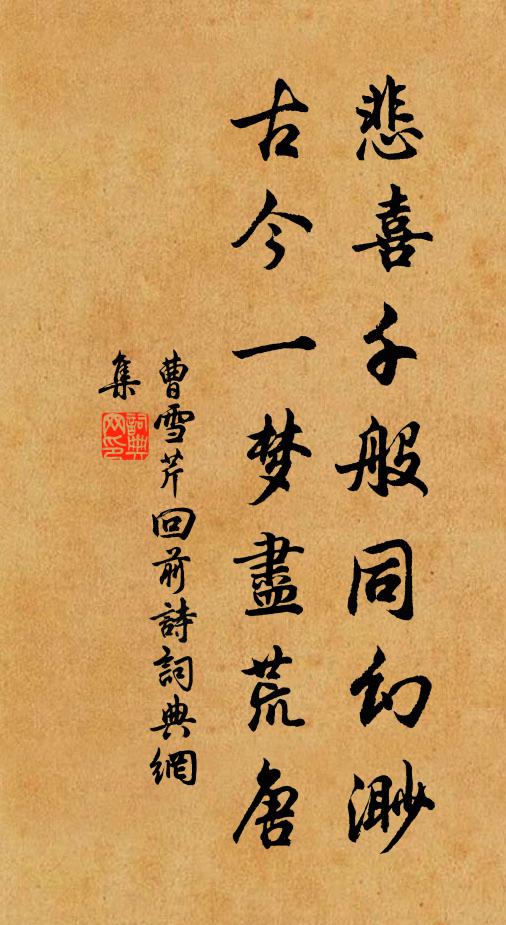 悲喜千般同幻渺
古今一梦盡荒唐
曹雪芹回前詩詞典網
集
詞典网印